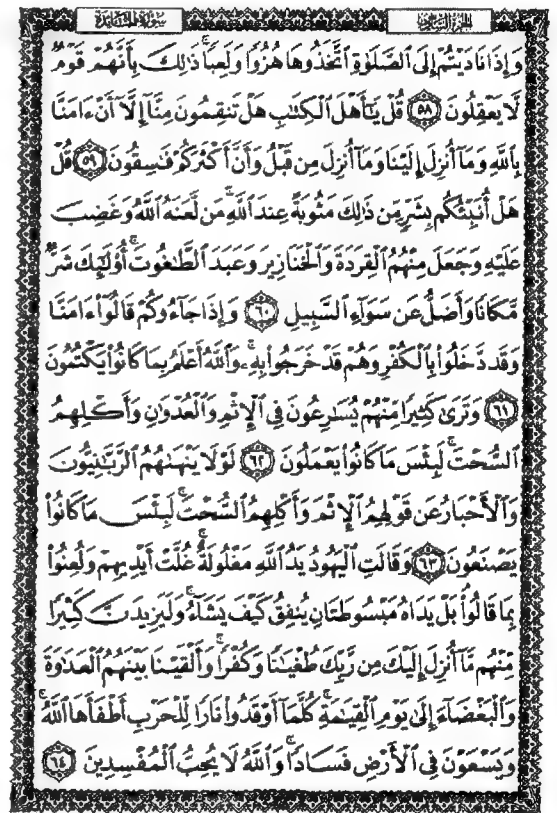 سورة المائدة
الجزء السادس
وَإِذَا نَادَيْتُمْ إِلَى ٱلصَّلَوٰةِ ٱتَّخَذُوهَا هُزُوًا وَلَعِبًا ۚ ذَٰلِكَ بِأَنَّهُمْ قَوْمٌ
لَّا يَعْقِلُونَ ٥٨ قُلْ يَٰٓأَهْلَ ٱلْكِتَٰبِ هَلْ تَنقِمُونَ مِنَّآ إِلَّآ أَنْ ءَامَنَّا
بِٱللَّهِ وَمَآ أُنزِلَ إِلَيْنَا وَمَآ أُنزِلَ مِن قَبْلُ وَأَنَّ أَكْثَرَكُمْ فَٰسِقُونَ ٥٩ قُلْ
هَلْ أُنَبِّئُكُم بِشَرٍّ مِّن ذَٰلِكَ مَثُوبَةً عِندَ ٱللَّهِ ۚ مَن لَّعَنَهُ ٱللَّهُ وَغَضِبَ
عَلَيْهِ وَجَعَلَ مِنْهُمُ ٱلْقِرَدَةَ وَٱلْخَنَازِيرَ وَعَبَدَ ٱلطَّٰغُوتَ ۚ أُو۟لَٰٓئِكَ شَرٌّ
مَّكَانًا وَأَضَلُّ عَن سَوَآءِ ٱلسَّبِيلِ ٦٠ وَإِذَا جَآءُوكُمْ قَالُوٓا۟ ءَامَنَّا
وَقَد دَّخَلُوا۟ بِٱلْكُفْرِ وَهُمْ قَدْ خَرَجُوا۟ بِهِۦ ۚ وَٱللَّهُ أَعْلَمُ بِمَا كَانُوا۟ يَكْتُمُونَ
٦١ وَتَرَىٰ كَثِيرًا مِّنْهُمْ يُسَٰرِعُونَ فِى ٱلْإِثْمِ وَٱلْعُدْوَٰنِ وَأَكْلِهِمُ
ٱلسُّحْتَ ۚ لَبِئْسَ مَا كَانُوا۟ يَعْمَلُونَ ٦٢ لَوْلَا يَنْهَىٰهُمُ ٱلرَّبَّٰنِيُّونَ
وَٱلْأَحْبَارُ عَن قَوْلِهِمُ ٱلْإِثْمَ وَأَكْلِهِمُ ٱلسُّحْتَ ۚ لَبِئْسَ مَا كَانُوا۟
يَصْنَعُونَ ٦٣ وَقَالَتِ ٱلْيَهُودُ يَدُ ٱللَّهِ مَغْلُولَةٌ ۚ غُلَّتْ أَيْدِيهِمْ وَلُعِنُوا۟
بِمَا قَالُوا۟ ۘ بَلْ يَدَاهُ مَبْسُوطَتَانِ يُنفِقُ كَيْفَ يَشَآءُ ۚ وَلَيَزِيدَنَّ كَثِيرًا
مِّنْهُم مَّآ أُنزِلَ إِلَيْكَ مِن رَّبِّكَ طُغْيَٰنًا وَكُفْرًا ۚ وَأَلْقَيْنَا بَيْنَهُمُ ٱلْعَدَٰوَةَ
وَٱلْبَغْضَآءَ إِلَىٰ يَوْمِ ٱلْقِيَٰمَةِ ۚ كُلَّمَآ أَوْقَدُوا۟ نَارًا لِّلْحَرْبِ أَطْفَأَهَا ٱللَّهُ ۚ
وَيَسْعَوْنَ فِى ٱلْأَرْضِ فَسَادًا ۚ وَٱللَّهُ لَا يُحِبُّ ٱلْمُفْسِدِينَ ٦٤